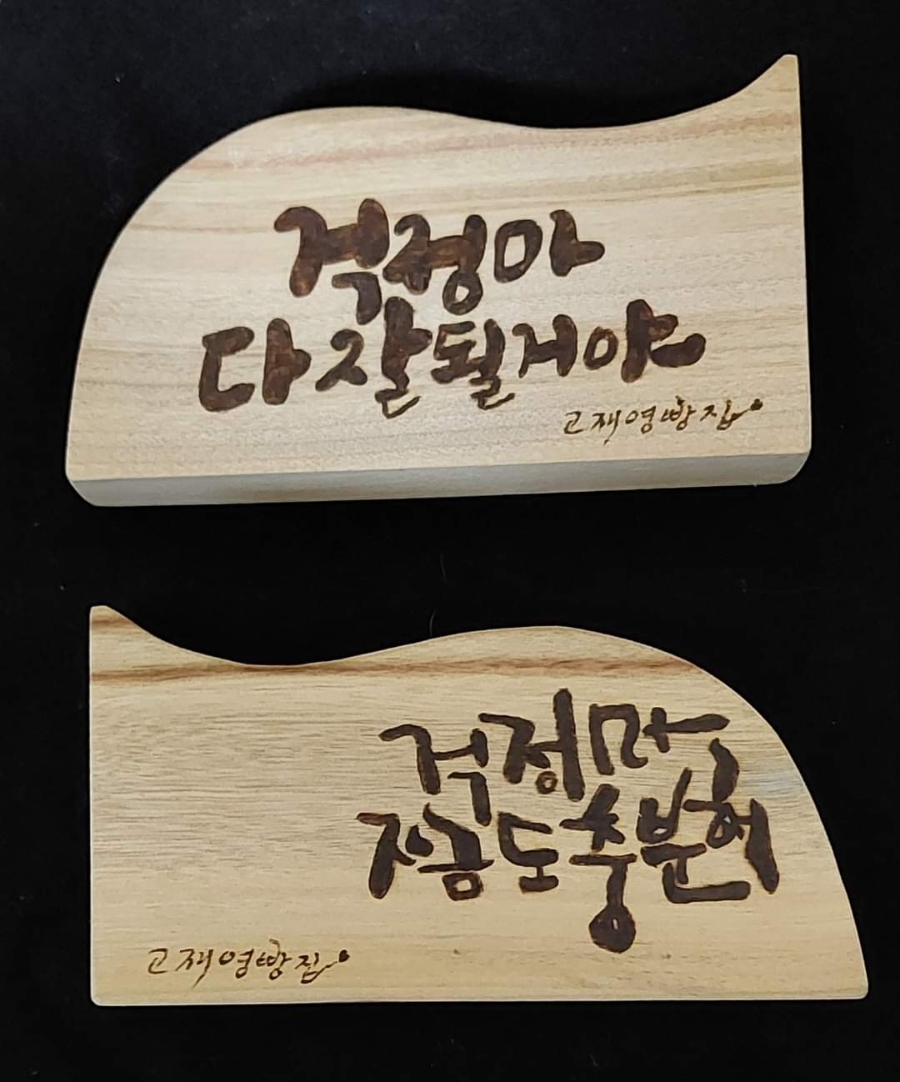 걱정마
다잘될거야
고재영빵집
걱정마
지금도충분해
고재영빵집